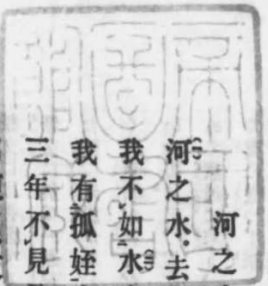 河之
河之水。去
我不如水
我有孤姪
三年不見